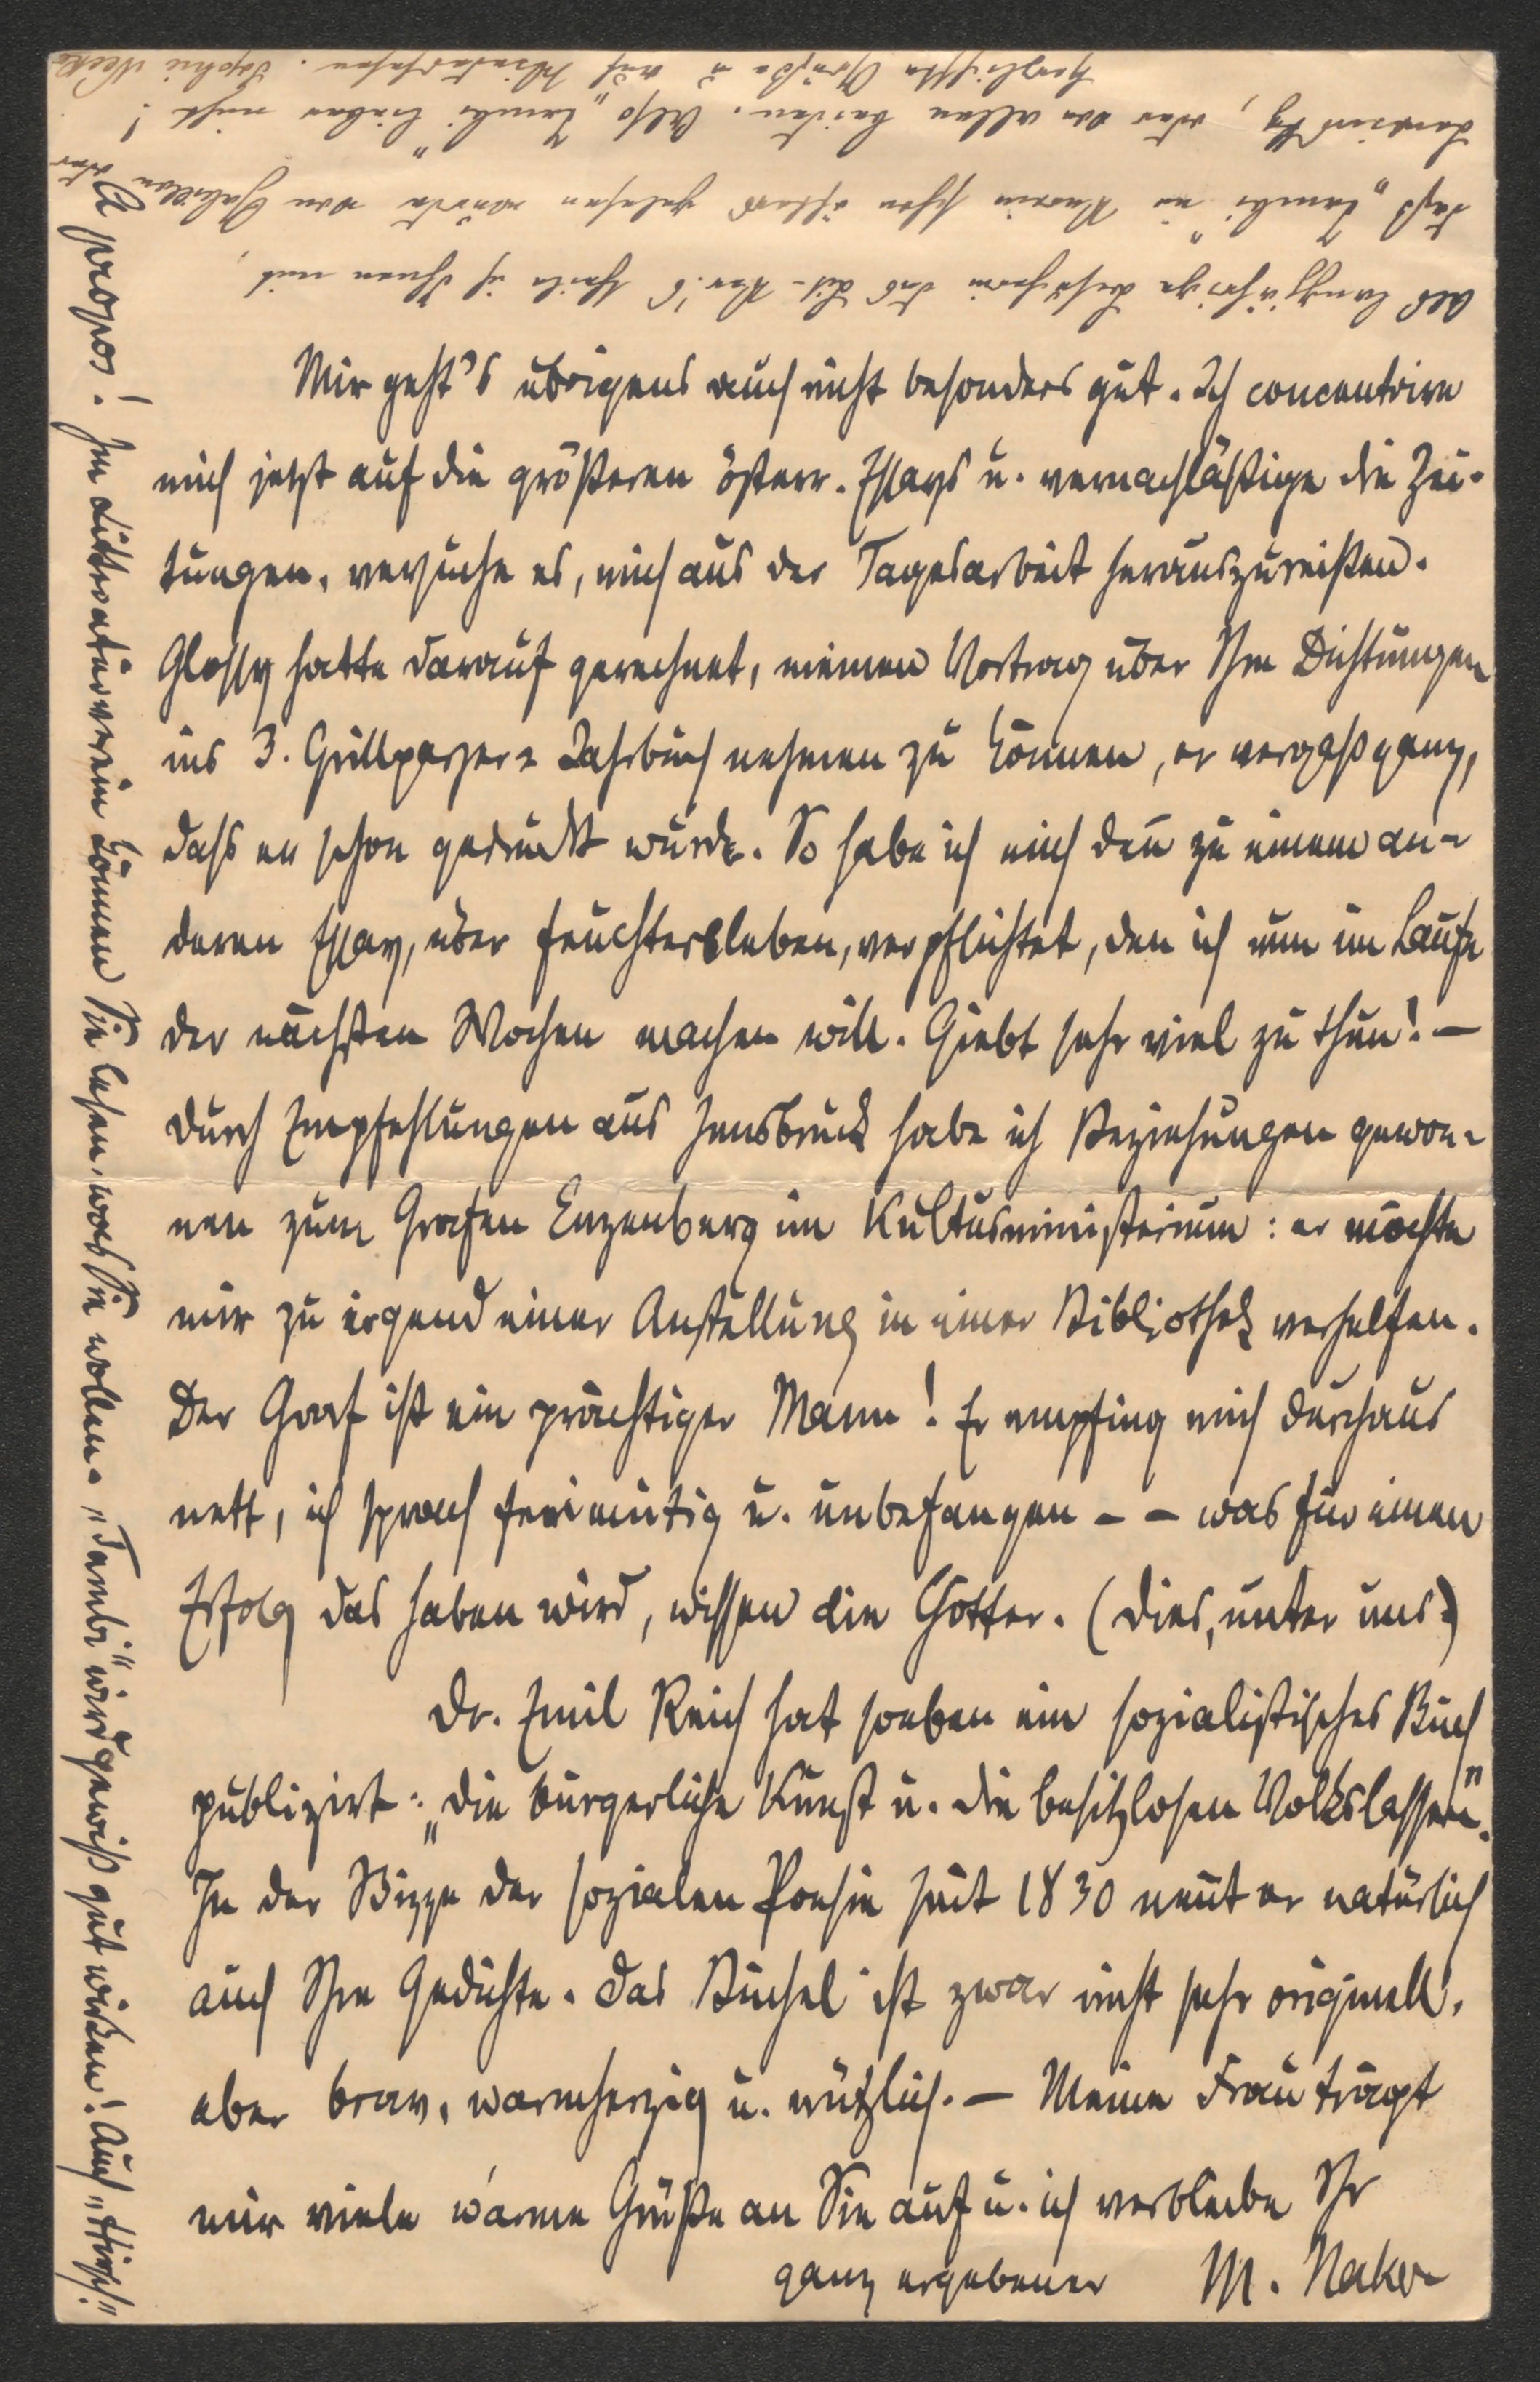 Mir geht's übrigens auch nicht besonders gut. Ich concentrire
mich jetzt auf die größeren österr. Essays u. vernachläßige die Zei-
tungen, versuche es, mich aus der Tagesarbeit herauszureißen.
Glossy hatte darauf gerechnet, meinen Vortrag über Ihre Dichtungen
ins 3. Grillparzer-Jahrbuch nehmen zu können, er vergaß ganz,
dass er schon gedruckt wurde. So habe ich mich den̄ zu einem an-
deren Essay, über Feuchtersleben, verpflichtet, den ich nun im Laufe
der nächsten Wochen machen will. Giebt sehr viel zu thun! —
Durch Empfehlungen aus Innsbruck habe ich Beziehungen gewon-
nen zum Grafen Enzenberg im Kultusministerium: er möchte
mir zu irgend einer Anstellung in einer Bibliothek verhelfen.
Der Graf ist ein prächtiger Mann! Er empfing mich durchaus
nett, ich sprach freimütig u. unbefangen - - was für einen
Erfolg das haben wird, wissen die Götter. (Dies, unter uns.)
Dr. Emil Reich hat soeben ein sozialistisches Buch
publizirt: „Die bürgerliche Kunst u. die besitzlosen Volksklassen".
In der Skizze der sozialen Poesie seit 1830 nen̄t er natürlich
auch Ihre Gedichte. Das Büchel ist zwar nicht sehr originell,
aber brav, warmherzig u. nützlich. — Meine Frau trägt
mir viele warme Grüße an Sie auf u. ich verbleibe Ihr
ganz ergebener M. Necker
A propos! Im Litteraturverein können Sie lesen, was Sie wollen. „Tambi" wird gewiß gut wirken! Auch „Hirsch"
Als langjährige Besucherin des Lit-Ver.'s theile ich Ihnen mit,
daß „Tambi" im Verein schon öfters gelesen wurde von Gabillon oder
Lewinsky, oder von allen beiden. Also „Tambi" lieber nicht!
Herzlichste Grüße u auf Wiedersehen. Sophie Necker